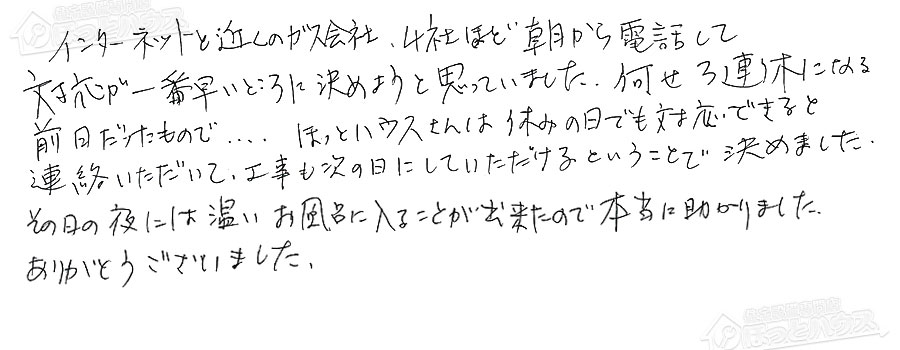 インターネットと近くのガス会社、4社ほど朝から電話して
対応が一番早いところに決めようと思っていました。何せ3連休になる
前日だったもので.... ほっとハウスさんは休みの日でも対応できると
連絡いただいて、工事も次の日にしていただけるということで決めました。
その日の夜には温いお風呂に入ることが出来たので本当に助かりました。
ありがとうございました。
住宅設備専門店
ほっとハウス